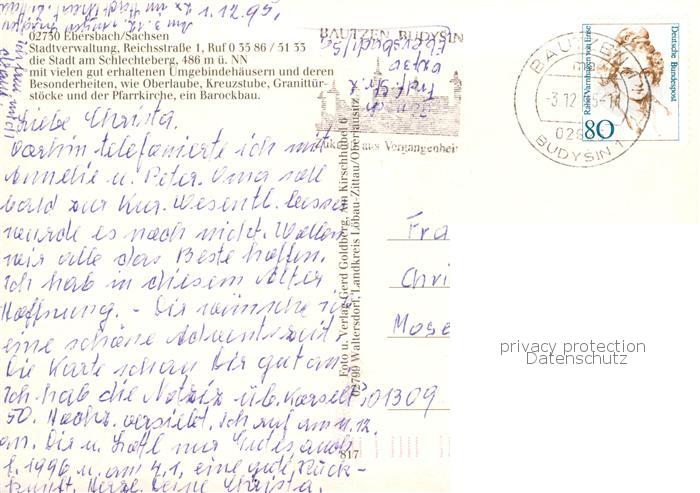 1.12.95,
02730 Ebersbach/Sachsen
Stadtverwaltung, Reichsstraße 1, Ruf 0 33 86 / 51 33
die Stadt am Schlechteberg, 486 m ü. NN
mit vielen gut erhaltenen Umgebindehäusern und deren
Besonderheiten, wie Oberlaube, Kreuzstube, Granittür-
stöcke und der Pfarrkirche, ein Barockbau.
Liebe Christa.
Vorhin telefonierte ich mit
Annelie u. Peter. Oma soll
bald zur Kur. Wesentl. besser
wurde es noch nicht. Wollen
wir alle das Beste hoffen.
Ich hab in diesem Alter
Hoffnung. - Dir wünsche ich
eine schöne Adventszeit.
Die Karte schau Dir gut an.
Ich hab die Notiz üb.
50. Hochz.
an. Dir u. nur Gutes auch
f. 1996 u. am 4.1, eine gute Rück-
kunft. Herzl. Deine Christa.
BAUTZEN BUDYŠIN
Ebersbach/Sa
02730
aus Vergangenheit
Foto u. Verlag Gerd Goldberg, Am Kirschhübel 6
02799 Waltersdorf, Landkreis Löbau-Zittau/Oberlausitz
817
BAUTZEN
-3.12.
026
BUDYŠIN 1
Rahel Varnhagen von Ense
Deutsche Bundespost
80
Fra
Chri
Mose
01309
privacy protection
Datenschutz